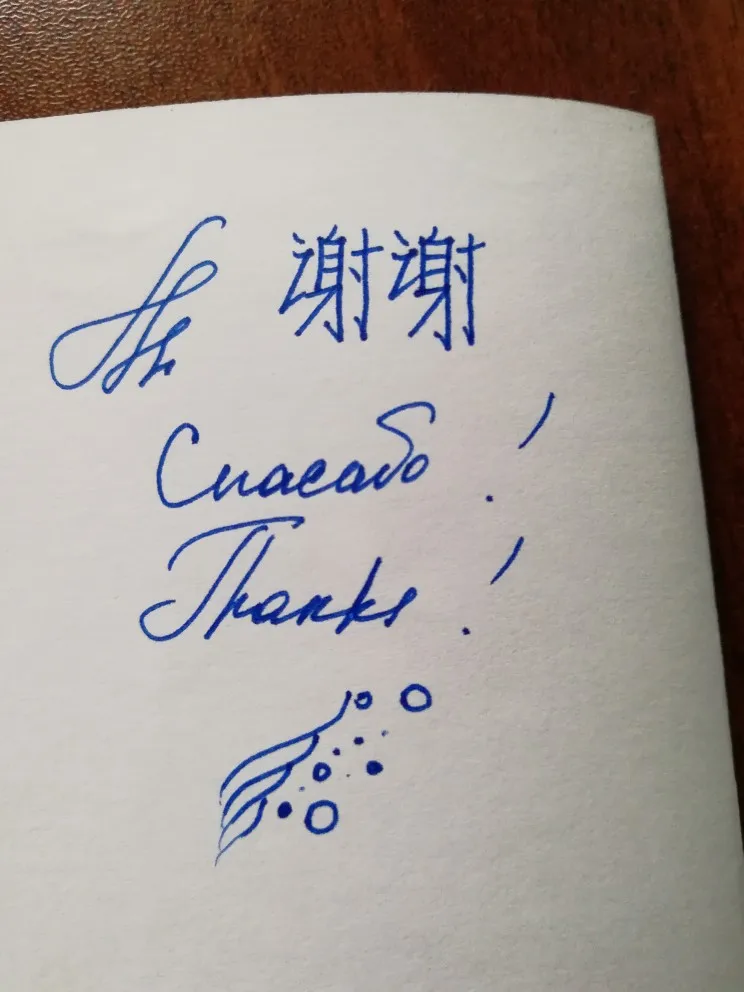 谢谢
Спасибо!
Thanks!